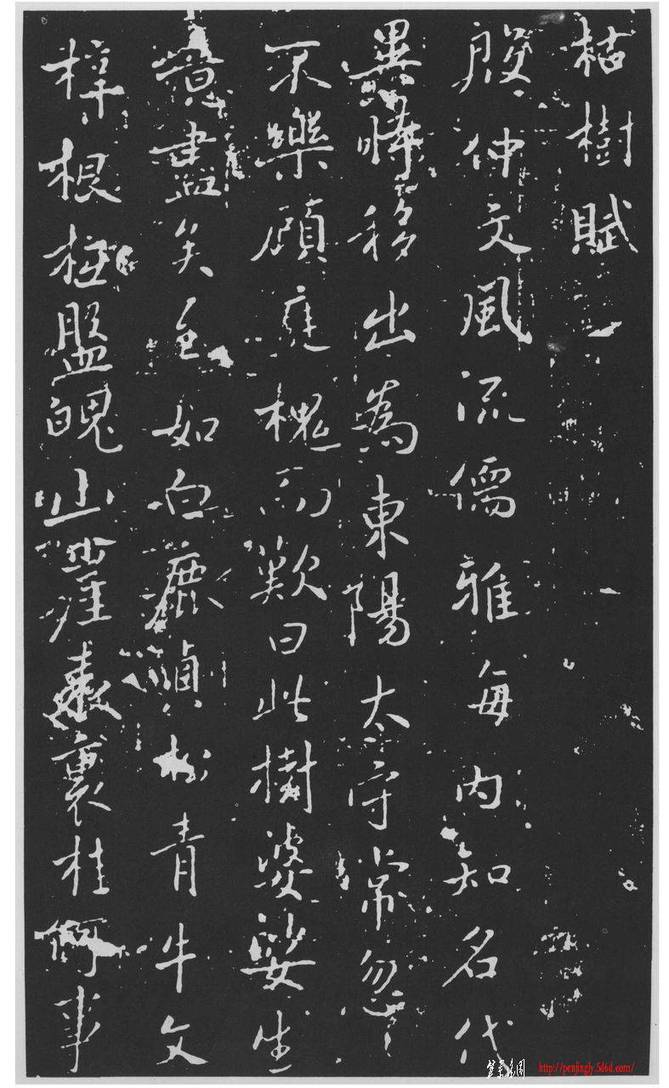 枯樹賦
殷仲文風流儒雅每內知名代
異時移出為東陽太守常忽〻
不樂顧庭槐而歎曰此樹婆娑生
意盡矣至如白鹿貞松青牛文
梓根柢盤魄山崖表裏桂何事
http://penjingly.5d6d.com/